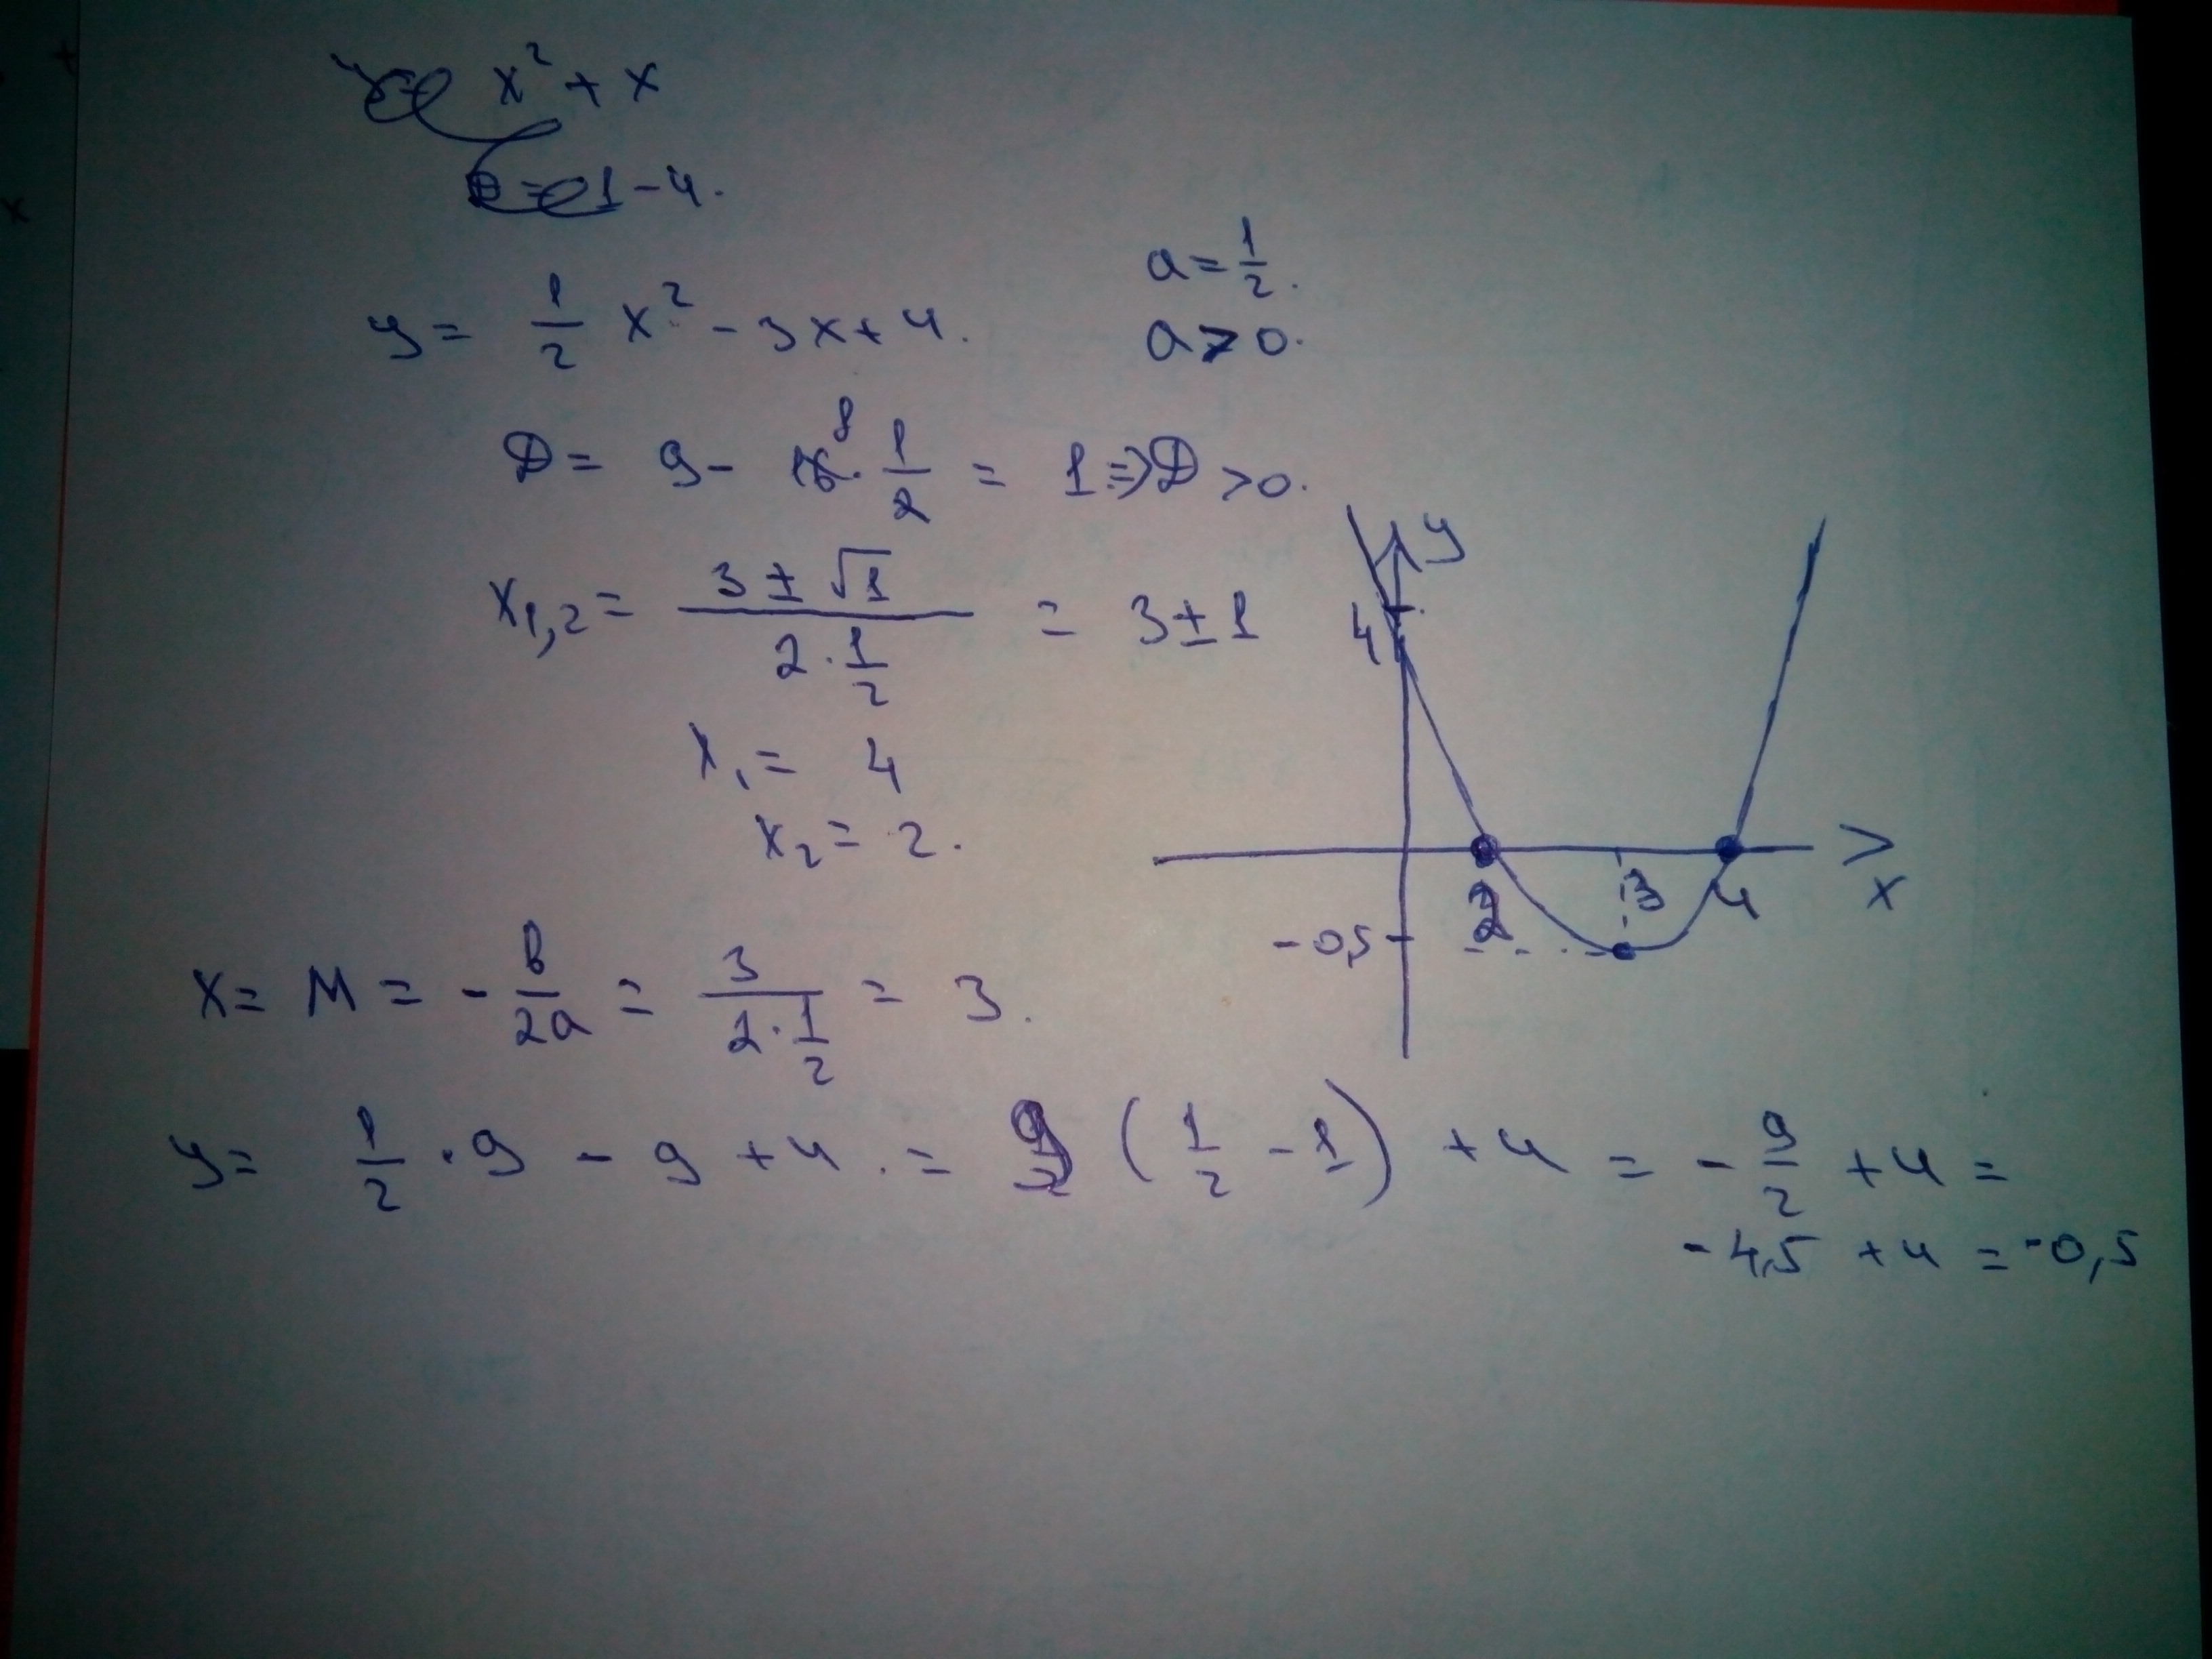 x² + x
= 1 - 4.
y = 1/2 x² - 3x + 4.
a = 1/2.
a > 0.
D = 9 - 16 8 · 1/2 = 1 ⇒ D > 0.
x1,2 = (3 ± √1) / (2 · 1/2) = 3 ± 1
x1 = 4
x2 = 2.
y
4
2
3
4
x
-0,5
x = м = - в/2а = 3/(2 · 1/2) = 3.
y = 1/2 · 9 - 9 + 4 . = 9 (1/2 - 1) + 4 = - 9/2 + 4 =
- 4,5 + 4 = -0,5